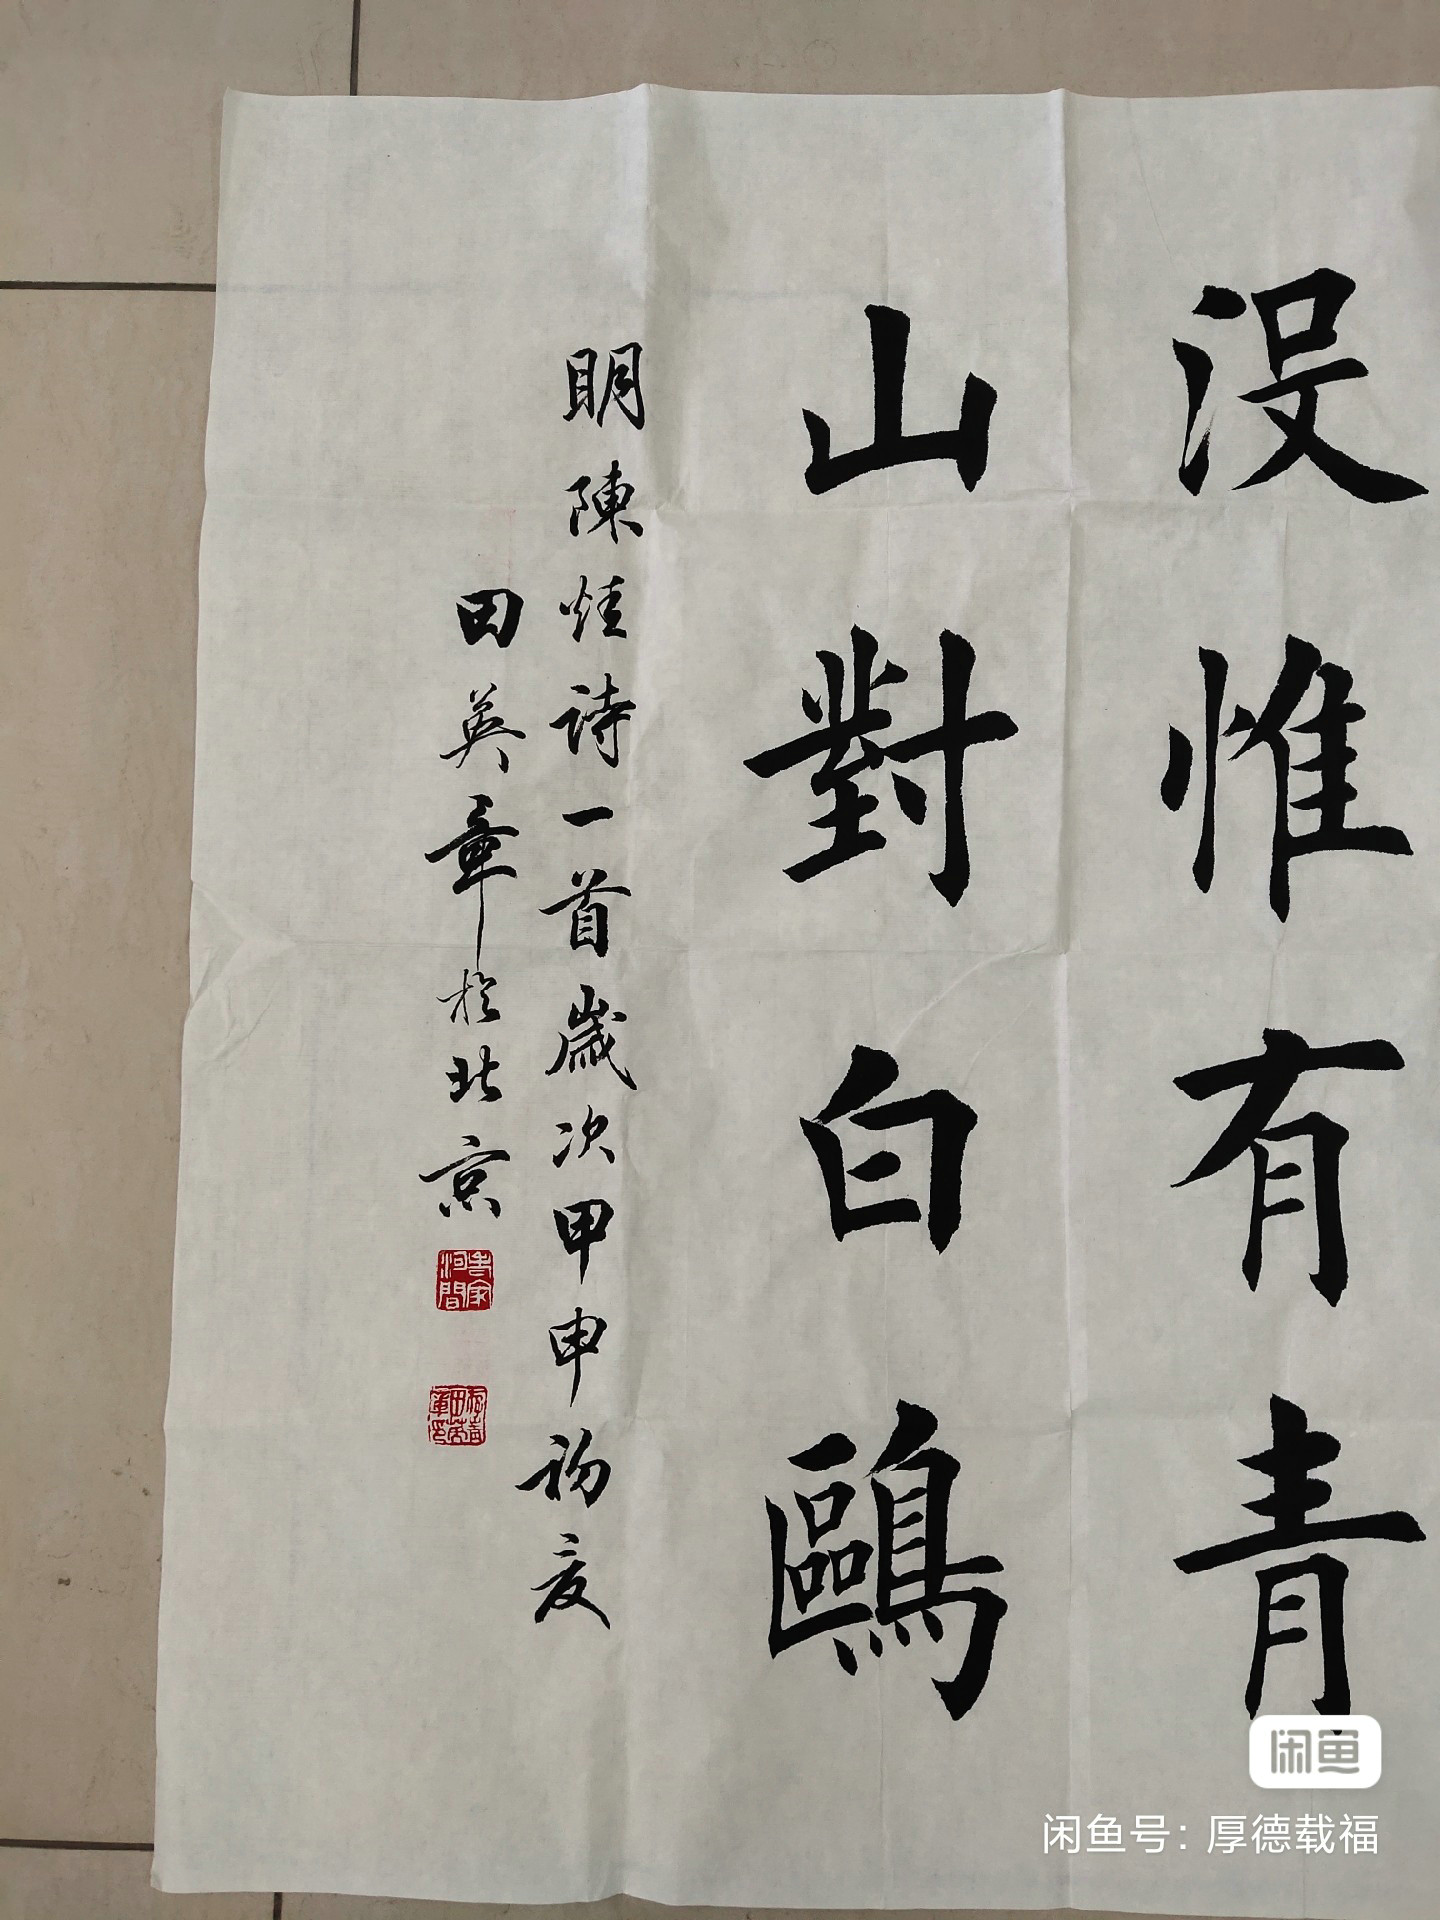 没惟有青
山對白鷗
明陳烓詩一首歲次甲申初夏
田英章於北京
河間
閑鱼
闲鱼号：厚德载福